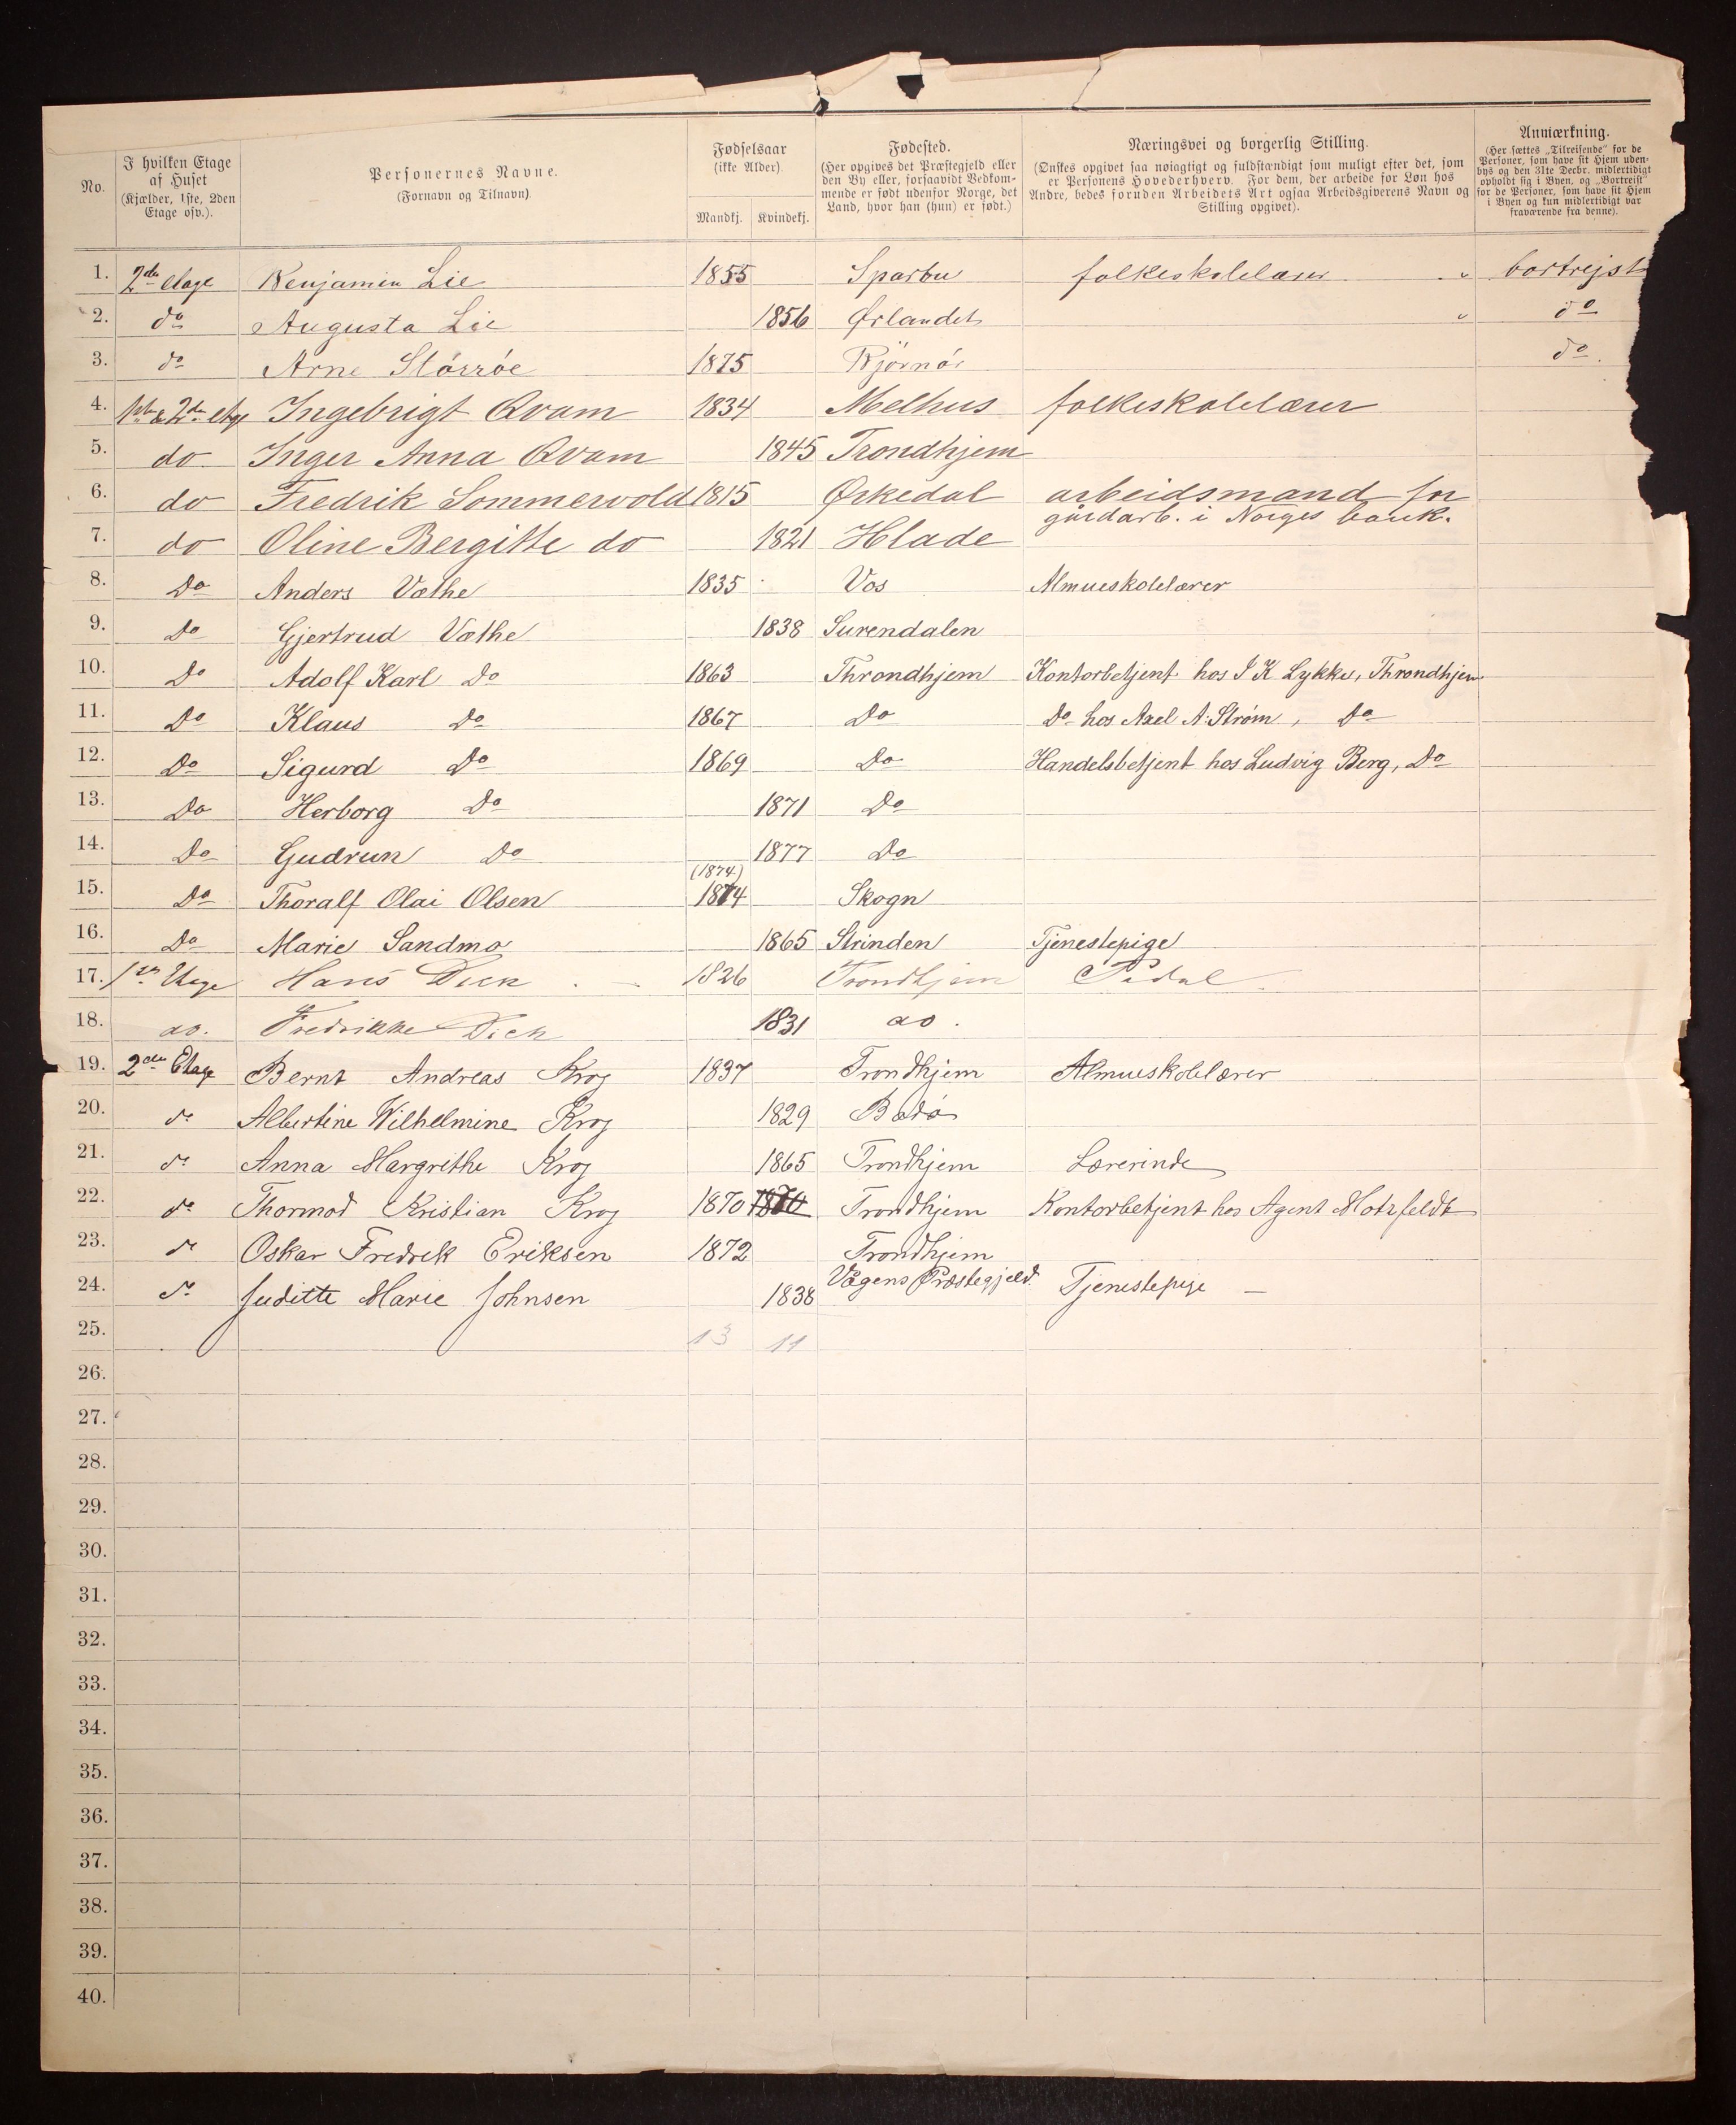 No.
I hvilken Etage
af Huset
(Kjælder, 1ste, 2den
Etage osv.).
Personernes Navne.
(Fornavn og Tilnavn).
Fødselsaar
(ikke Alder)
Mandkj. Kvindekj.
Fødested.
(Her opgives det Præstegjeld eller
den By eller, forsaavidt Vedkom-
mende er født udenfor Norge, det
Land, hvor han (hun) er født.)
Næringsvei og borgerlig Stilling.
(Ønskes opgivet saa nøiagtigt og fuldstændigt som muligt efter det, som
er Personens Hovederhverv. For dem, der arbeide for Løn hos
Andre, bedes foruden Arbeidets Art ogsaa Arbeidsgiverens Navn og
Stilling opgivet).
Anmærkning.
(Her sættes „Tilreisende" for de
Personer, som have sit Hjem uden-
bys og den 31te Decbr. midlertidigt
opholdt sig i Byen, og „Bortreist"
for de Personer, som have sit Hjem
i Byen og kun midlertidigt var
fraværende fra denne).
1. 2den etage Benjamin Lie 1855 Sparbu folkeskolelærer " bortrejst
2. do Augusta Lie 1856 Ørlandet " do
3. do Arne Størröe 1875 Bjørnör do.
4. 1ste & 2den etage Ingebrigt Qvam 1834 Melhus folkeskolelærer
5. do Inger Anna Qvam 1845 Trondhjem
6. do Fredrik Sommervold 1815 Ørkedal arbeidsmand for
gårdarb. i Norges bank.
7. do Oline Bergitte do 1821 Hlade
8. Do Anders Væthe 1835 Vos Almueskolelærer
9. Do Gjertrud Væthe 1838 Surendalen
10. Do Adolf Karl Do 1863 Throndhjem Kontorbetjent hos I K Lykke, Throndhjem
11. Do Klaus Do 1867 Do Do hos Axel A. Strøm, Do
12. Do Sigurd Do 1869 Do Handelsbetjent hos Ludvig Berg, Do
13. Do Herborg Do 1871 Do
14. Do Gudrun Do 1877 Do
(1874)
15. Do Thoralf Olai Olsen 1874 Skogn
16. Do Marie Sandmo 1865 Strinden Tjenestepige
17. 1ste Etage Hans Dick 1826 Trondhjem Pedel
18. do. Fredrikke Dick 1831 do.
19. 2den Etage Bernt Andreas Krog 1837 Trondhjem Almueskolelærer
20. do Albertine Wilhelmine Krog 1829 Bodö
21. do Anna Margrethe Krog 1865 Trondhjem Lærerinde
22. do Thormod Kristian Krog 1870 1870 Trondhjem Kontorbetjent hos Agent Motzfeldt
23. do Oskar Fredrik Eriksen 1872 Trondhjem
24. do Juditte Marie Johnsen 1838 Vågens Præstegjeld. Tjenestepige
25. 13 11
26.
27.
28.
29.
30.
31.
32.
33.
34.
35.
36.
37.
38.
39.
40.